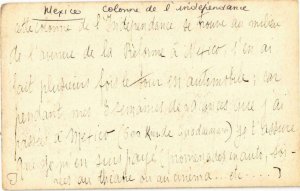 Mexico colonne de l'indépendance
cette Colonne de l'Indépendance se trouve au milieu
de l'avenue de la Réforme à Mexico j'en ai
fait plusieurs fois le tour en automobile ; car
pendant mes 8 semaines de vacances que j'ai
passées à Mexico je t'assure
que je m'en suis payé (promenades en auto, soi-
rées au théâtre ou au cinéma ... etc ....)